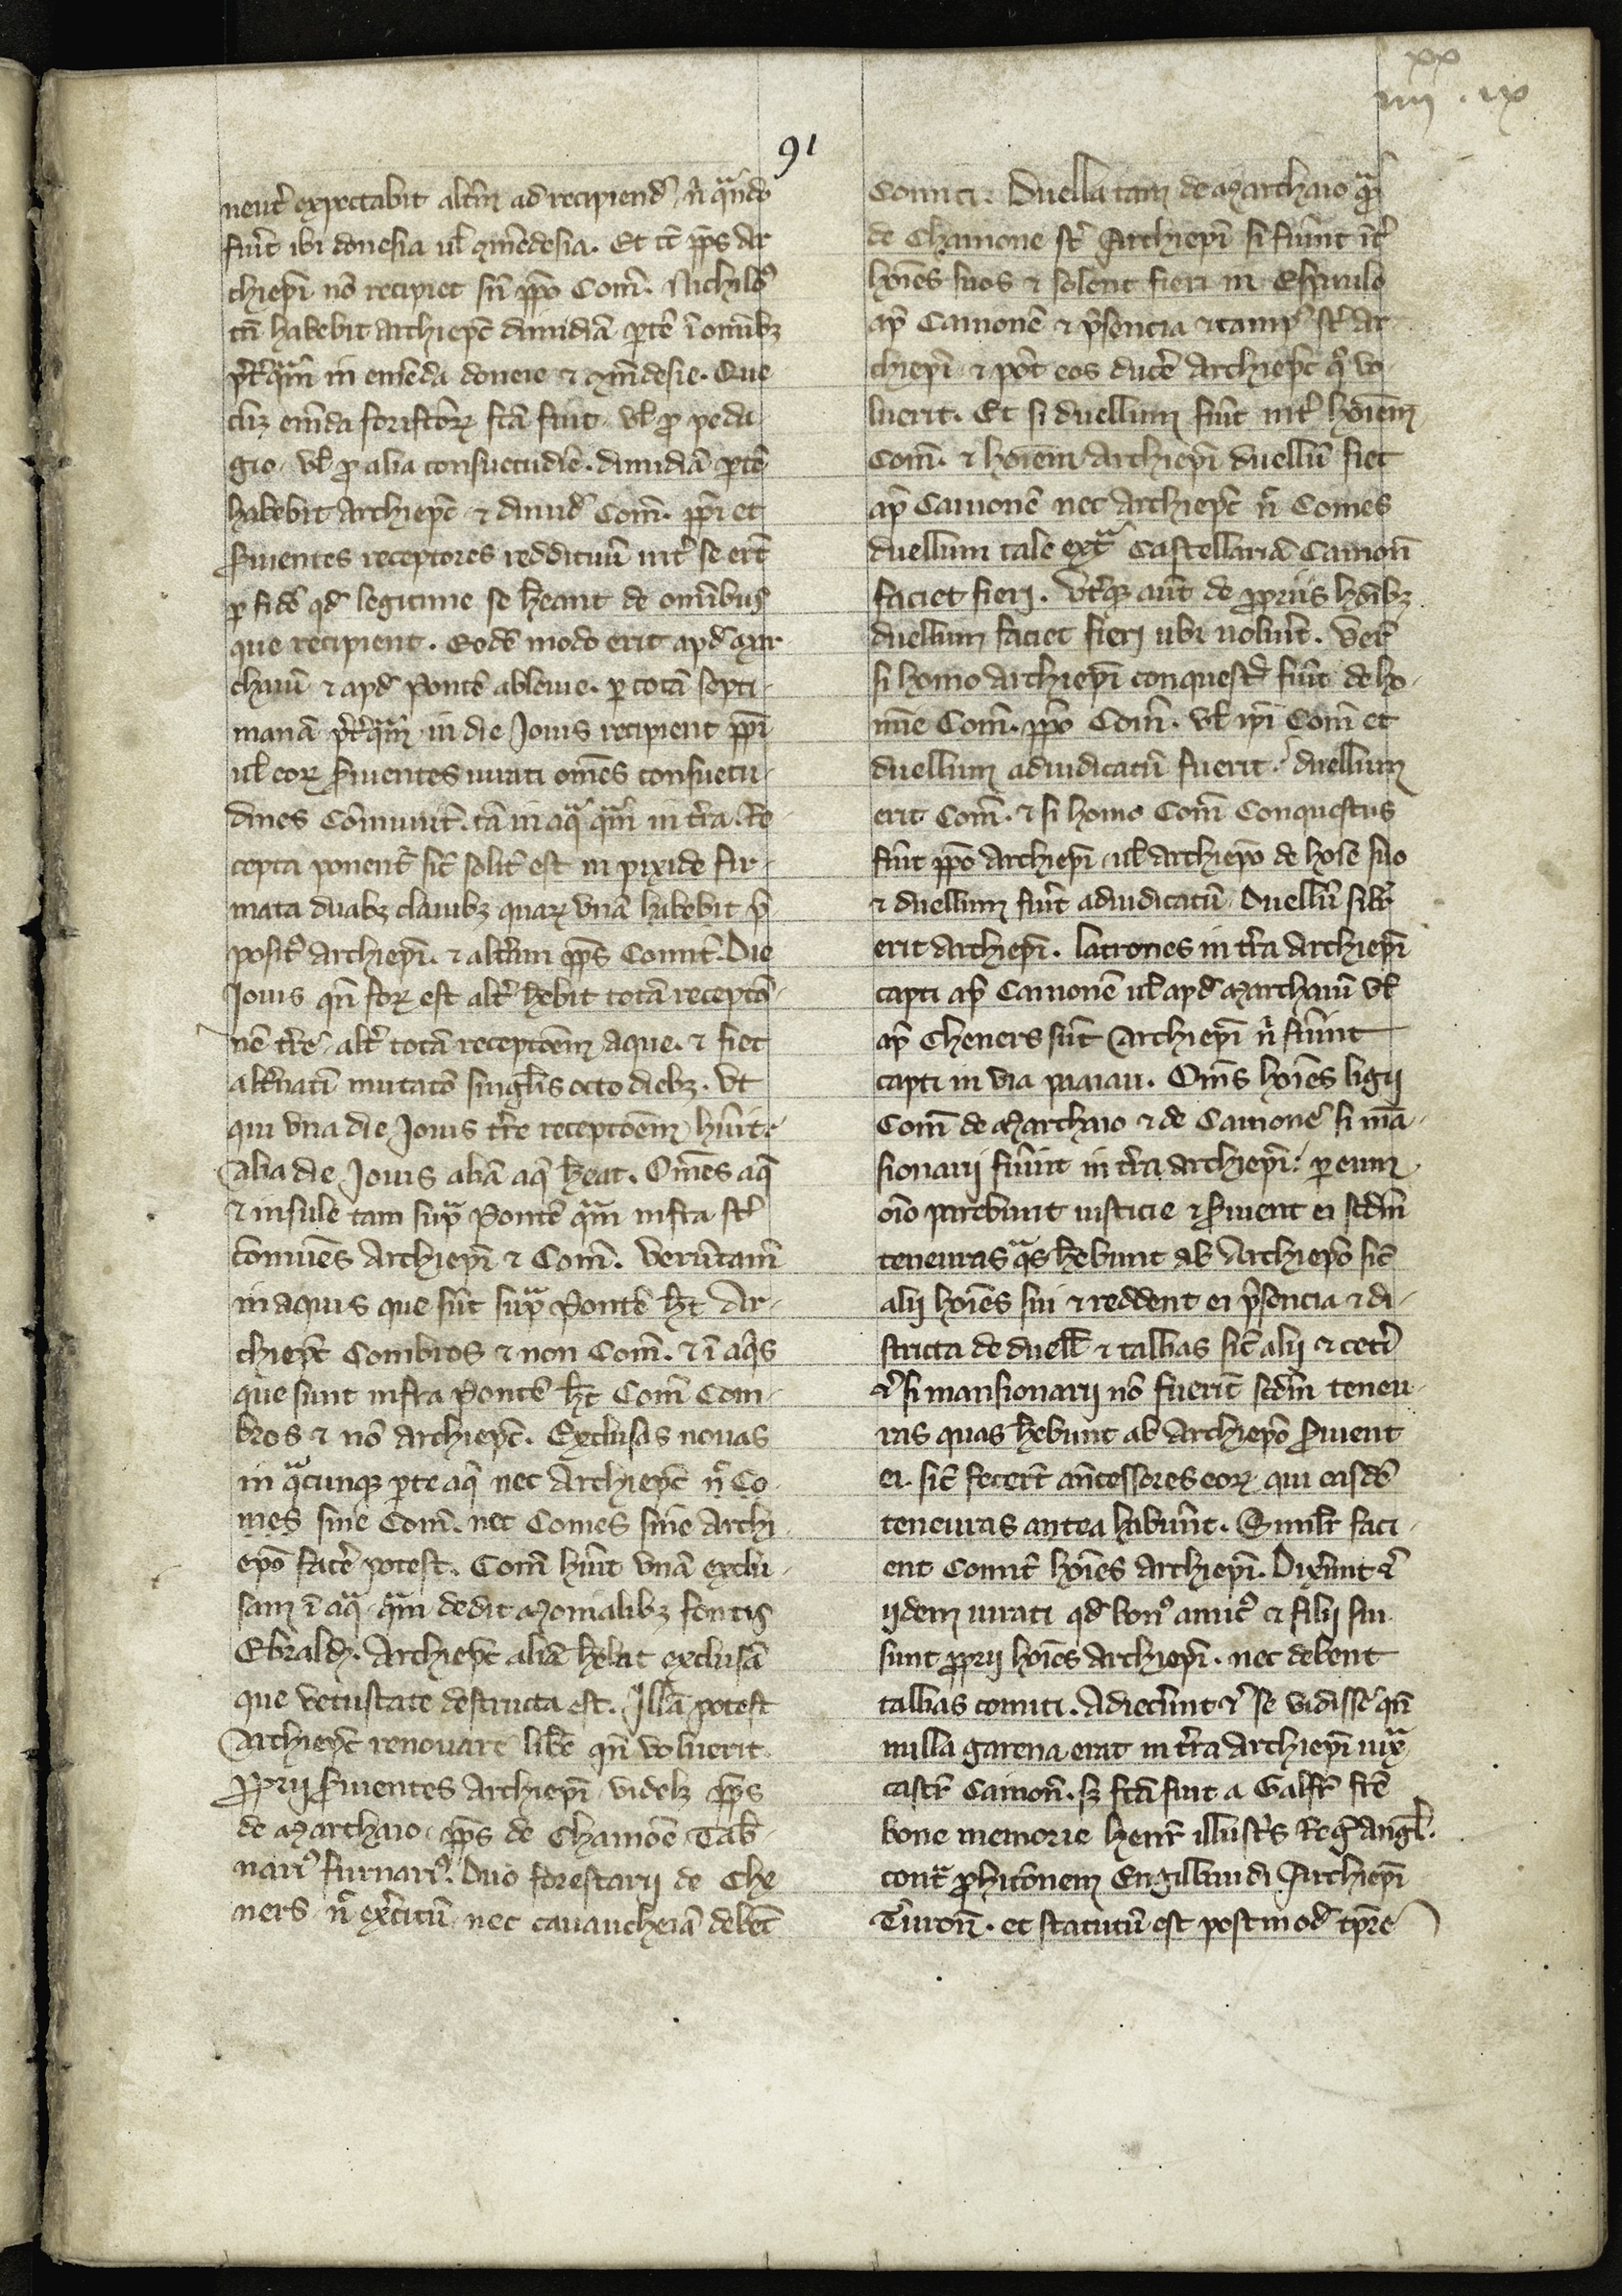 xx
iiii . ix
91
neut̃ expectabit alt̃m ad recipiend̃ n̄ qͣndo
fuīt ibi donesia ul̃ ꝯmẽdesia. Et tc̃ pp̃s Ar
chiepĩ nõ recipiet sñ pp̃o Com̃. Nichilo꯹
tñ habebit archiepc̃ dimidiã ꝑtẽ ĩ om̃ibꝫ
p̃t̃qͣm in emẽda doneie ⁊ ꝯmẽdesie. Que
cũqꝫ em̃da forifc̃oꝝ fc̃a fuit vl̃ ꝓ peda
gio. vl̃ ꝓ alia consuetudĩe. dimidiã ꝑtẽ
habebit Archiepc̃ ⁊ dimid̃ Com̃. pp̃i et
ẜuientes receptores reddituũ int̃ se ert̃
ꝑ fidẽ qd̃ legitime se hẽant de om̃ibus
que recipient. Eodẽ modo erit apd̃ Mar
chaiũ ⁊ apd̃ Pontẽ ableuie. ꝑ totã septi
manã p̃t̃qͣm in die Jouis recipient pp̃i
ul̃ eoꝝ ẜuientes iurati om̃es consuetu
dines Cõmunit̃. tã in aqͣ qͣm in t̃ra. Re
cepta ponent̃ sic̃ solit̃ est in pixide fir
mata duabꝫ clauibꝫ quaꝝ vnã habebit p̃
posit꯹ Archiepĩ. ⁊ alt̃am pp̃s Comit̃. Die
Jouis qñ foꝝ est alt̃ hẽbit totã receptõ
nẽ t̃re. alt̃ totã receptõem aque. ⁊ fiet
alt̃natĩ mutatõ singl̃is octo diebꝫ. Vt
qui vna die Jouis t̃re receptõem hũit.
alia die Jouis aliã aq̃ hẽat. Om̃es aq̃
⁊ insule tam supͣ Pontẽ qͣm infra st̃
cõmues Archiepĩ ⁊ Com̃. Verũtam̃
in aquis que sũt supͣ Pontẽ ht̃ Ar
chiepc̃ Combros ⁊ non Com̃. ⁊ ĩ aq̃s
que sunt infra Pontẽ ht̃ Com̃ Com
bros ⁊ nõ archiepc̃. Exclusas nouas
in qͣcunqꝫ ꝑte aq̃ nec Archiepc̃ nͨ Co
mes sine Com̃. nec Comes sine Archi
epõ facẽ potest. Com̃ hũit vnã exclu
sam ĩ aqͣ. qͣm dedit Monialibꝫ fontis
Ebraldi. Archiepc̃ aliã hẽbat exclusã
que vetustate destructa est. Illã potest
Archiepc̃ renouare libẽ qñ voluerit.
Ꝓprij ẜuientes Archiepĩ videlꝫ pp̃s
de Marchaio. pp̃s de Chainoẽ Tab̃
nari꯹ furnari꯹. Duo forestarij de Che
ners. nͨ ex̃citũ nec cauaucheiã debẽt
Comiti. Duella tam de Marchaio qͣm
de Chainone st̃ Archiepĩ si fiũnt int̃
hoĩes suos ⁊ solent fieri in Esturulo
ap̃ Cainonẽ ⁊ p̃sencia ⁊ camp꯹ st̃ Ar
chiepĩ ⁊ põt eos ducẽ Archiepc̃ qͦ vo
luerit. Et si duellum fiũt int̃ hoĩem
Com̃. ⁊ hoĩem Archiepĩ duellũ fiet
ap̃ Cainonẽ nec Archiepc̃ nͨ Comes
duellum tale extͣ Castellariã Cainoñ
faciet fieri. Vt̃qꝫ aũt de ꝓpriis hoĩbꝫ
duellum faciet fieri ubi uolũit. Verũ
si homo Archiepĩ conquest꯹ fũit de ho
mine Com̃. pp̃o Com̃. vl̃ ip̃i Com̃ et
duellum adiudicatũ fuerit. duellum
erit Com̃. ⁊ si homo Com̃ Conquestus
fũit pp̃o Archiepĩ ul̃ archiepõ de hoĩe suo
⁊ duellum fũit adiudicatũ. Duellũ silr̃
erit Archiepĩ. Latrones in t̃ra Archiepĩ
capti ap̃ Cainonẽ ul̃ apd̃ Marchaiũ vl̃
ap̃ Cheners sũt Archiepĩ n̄ fũint
capti in via . Om̃s hoĩes ligij
Com̃ de Marchaio ⁊ de Cainone si mã
sionarij fũint in t̃ra Archiepĩ. ꝑ eum
oĩo parebunt iusticie ⁊ ẜuient ei scd̃m
teneuras qͣs hẽbunt ab Archiepõ sic̃
alij hoĩes sui ⁊ reddent ei p̃sencia ⁊ di
stricta de duell̃ ⁊ tallias sic̃ alij ⁊ cet̃i
⁊̃ si mansionarij nõ fuerĩt scd̃m teneu
ras quas hẽbunt ab Archiepõ ẜuient
ei. sic̃ fecert̃ añcessores eoꝝ qui easdẽ
teneuras antea habũnt. Similr̃ faci
ent Comit̃ hoĩes Archiepĩ. Dixũnt ⁊̃
ijdem iurati qd̃ bon꯹ amic꯹ ⁊ filij sui
sunt ꝓprij hoĩes Archiepĩ. nec debent
tallias comiti. Adiecũnt ⁊̃ se vidissẽ qñ
nulla garena erat in t̃ra Archiepĩ iuxͣ
castr̃ Cainoñ. sꝫ fc̃a fuit a Galfr̃ frẽ
bone memorie Henr̃ illust̃s Reg̃ Angl̃.
contͣ ꝓhibitõnem Engilbaudi Archiepĩ
Turoñ. et statutũ est postmod̃ tp̃re